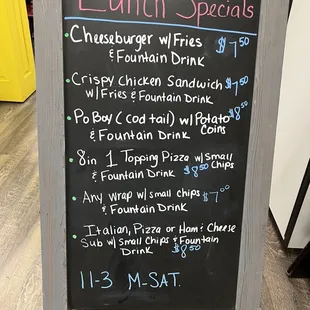 Lunch Specials
• Cheeseburger w/Fries $7.50
& Fountain Drink
• Crispy Chicken Sandwich $7.50
w/Fries & Fountain Drink
• Po Boy (cod tail) w/Potato $8.50
& Fountain Drink Coins
• 8in 1 Topping Pizza w/ Small
& Fountain Drink $8.50 Chips
• Any wrap w/ small chips $7.00
& Fountain Drink
• Italian, Pizza or Ham & Cheese
Sub w/ Small Chips & Fountain
Drink $8.50
11-3 M-SAT.